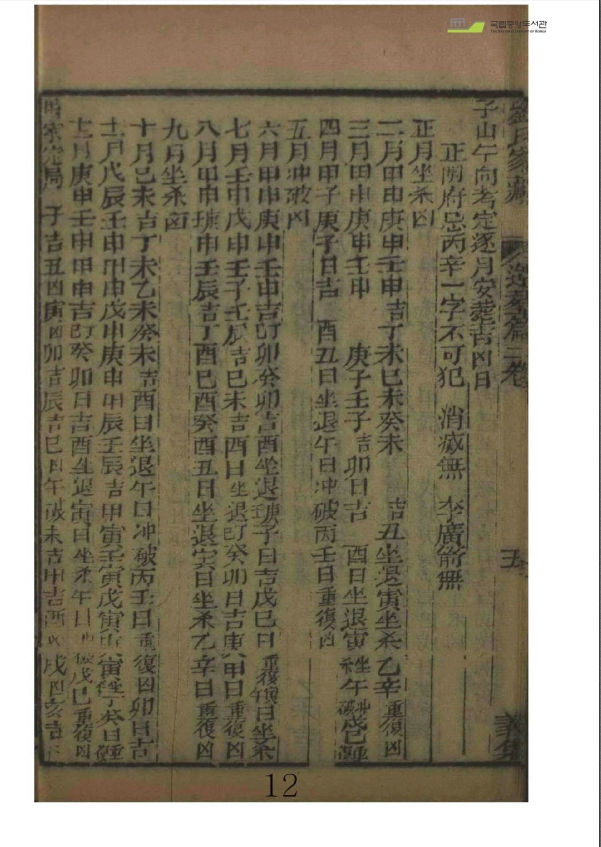 국립중앙도서관
THE NATIONAL LIBRARY OF KOREA
劉氏家藏 二卷 五 義集
子山午向考定逐月安葬吉凶日
正陰府忌丙辛二字不可犯 消滅無 李廣箭無
正月坐杀凶
二月甲申庚申壬申吉丁未巳未癸未 吉丑坐退寅坐杀乙辛重復凶
三月甲申庚申壬申 庚子壬子吉卯日吉 酉日坐退寅坐午冲破
四月甲子庚子日吉 酉丑日坐退午日冲破丙壬日重復凶
五月冲破凶
六月甲申庚申壬申吉 卯癸卯吉酉坐退 子日吉戊巳日重復 日坐杀
七月壬申戊申壬子壬辰吉巳未吉酉日坐退 癸卯日吉庚甲日重復凶
八月甲申 申壬辰吉丁酉巳酉癸酉丑日坐退寅日坐杀乙辛日重復凶
九月坐杀凶
十月巳未吉丁未乙未癸未吉酉日坐退午日冲破丙壬日重復凶卯日吉
十一月戊辰壬申甲申戊申庚申甲辰壬辰吉甲寅壬寅戊寅 寅 丁癸日
十二月庚申壬申甲申吉 癸卯日吉酉坐退寅日坐杀午日 破戊巳重復凶
子吉丑凶寅凶卯吉辰吉巳凶午破未吉申吉酉凶戌凶亥吉
12